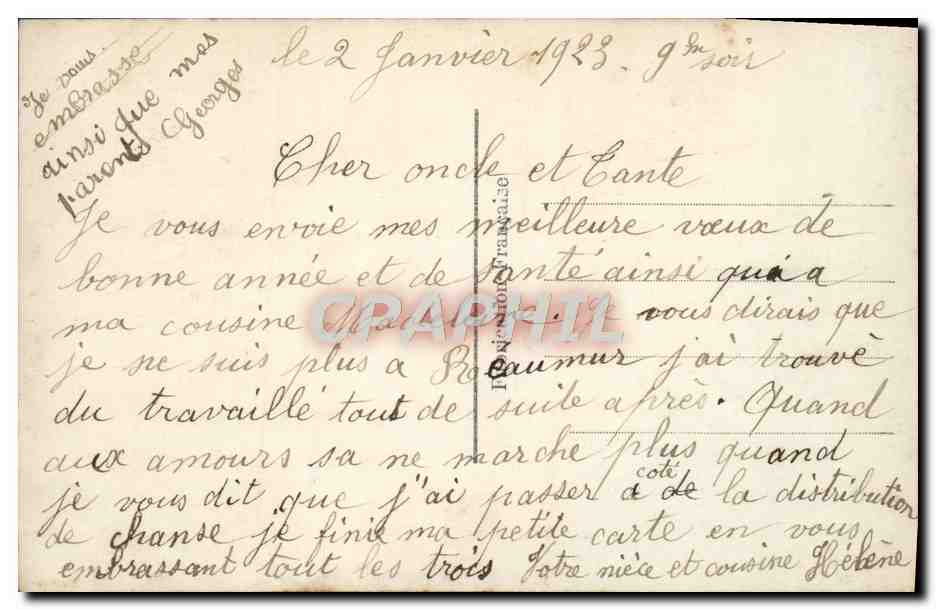 le 2 Janvier 1923. 9h soir
Je vous
embrasse
ainsi que mes
parents Georges
Cher oncle et Tante
Je vous envoie mes meilleure vœux de
bonne année et de santé ainsi qua a
ma cousine Madeleine. Je vous dirais que
je ne suis plus a Reaumur j'ai trouvè
du travaillé tout de suite après. Quand
aux amours sa ne marche plus quand
je vous dit que j'ai passer a coté de la distribution
de chanse je finie ma petite carte en vous
embrassant tout les trois Votre nièce et cousine Hélène
Fabrication Française
CPAPHIL